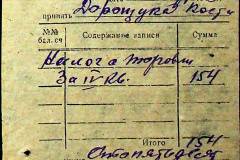 принять Дорощука Кости
№№ бал. сч Содержание записи Сумма
Налог а торговли
За IV кв. 154
Итого 154
Стопятьдеся